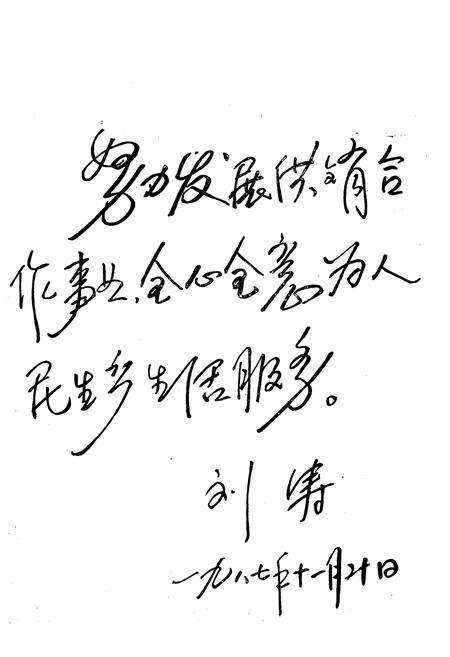 努力发展供销合
作事业,全心全意为人
民生产生活服务。
刘涛
一九八七年十一月廿日